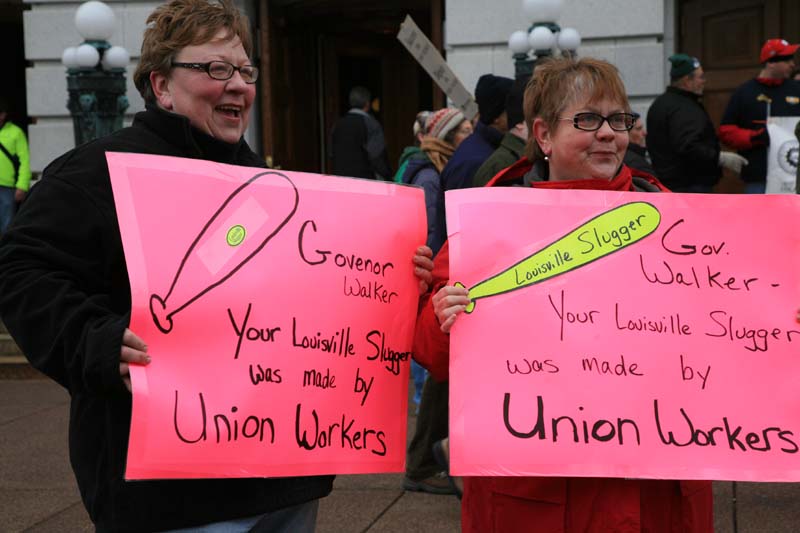 Govenor
Walker
Your Louisville Slugger
was made by
Union Workers
Louisville Slugger
Gov.
Walker -
Your Louisville Slugger
was made by
Union Workers